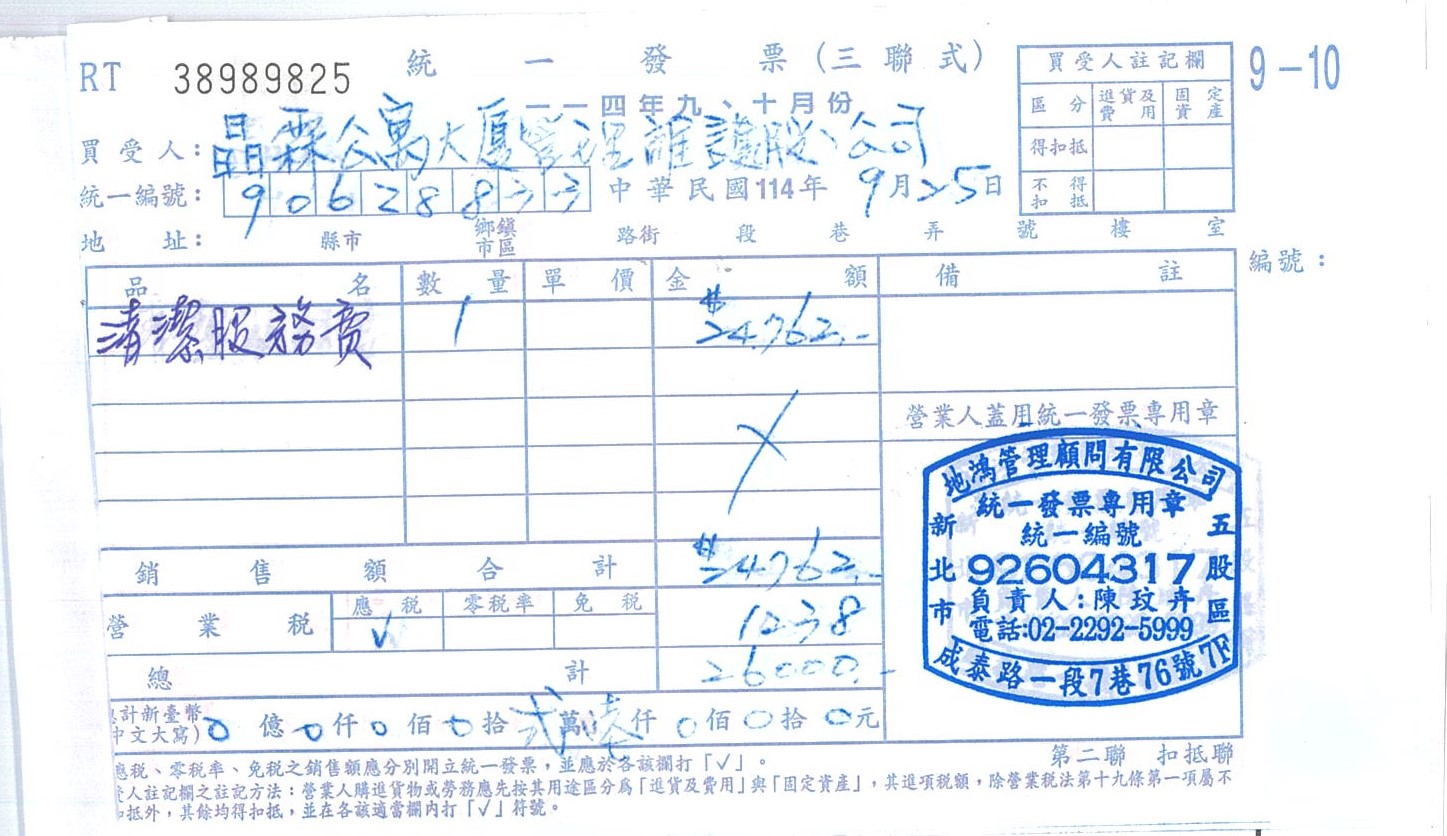 RT 38989825 統一發票(三聯式)
9-10
一一四年九、十月份
買受人註記欄
區分 進貨及費用 固定資產
得扣抵
不得扣抵
買受人:晶霖公寓大廈管理維護股公司
統一編號: 90628833 中華民國114年 9月25日
地址: 縣市 鄉鎮市區 路街 段 巷 弄 號 樓 室
編號:
品名 數量 單價 金額 備註
清潔服務費 1 $24,762.-
營業人蓋用統一發票專用章
銷售額合計 $24,762.-
營業稅 應稅 ✓ 零稅率 免稅 1238
總計 26000.-
總計新臺幣(中文大寫) 0億0仟0佰0拾弍萬陸仟0佰0拾0元
地鴻管理顧問有限公司
統一發票專用章
統一編號
92604317
負責人:陳玟卉
電話:02-2292-5999
新北市五股區
成泰路一段7巷76號7F
第二聯 扣抵聯
應稅、零稅率、免稅之銷售額應分別開立統一發票,並應於各該欄打「✓」。
人註記欄之註記方法:營業人購進貨物或勞務應先按其用途區分為「進貨及費用」與「固定資產」,其進項稅額,除營業稅法第十九條第一項屬不
扣抵外,其餘均得扣抵,並在各該適當欄內打「✓」符號。